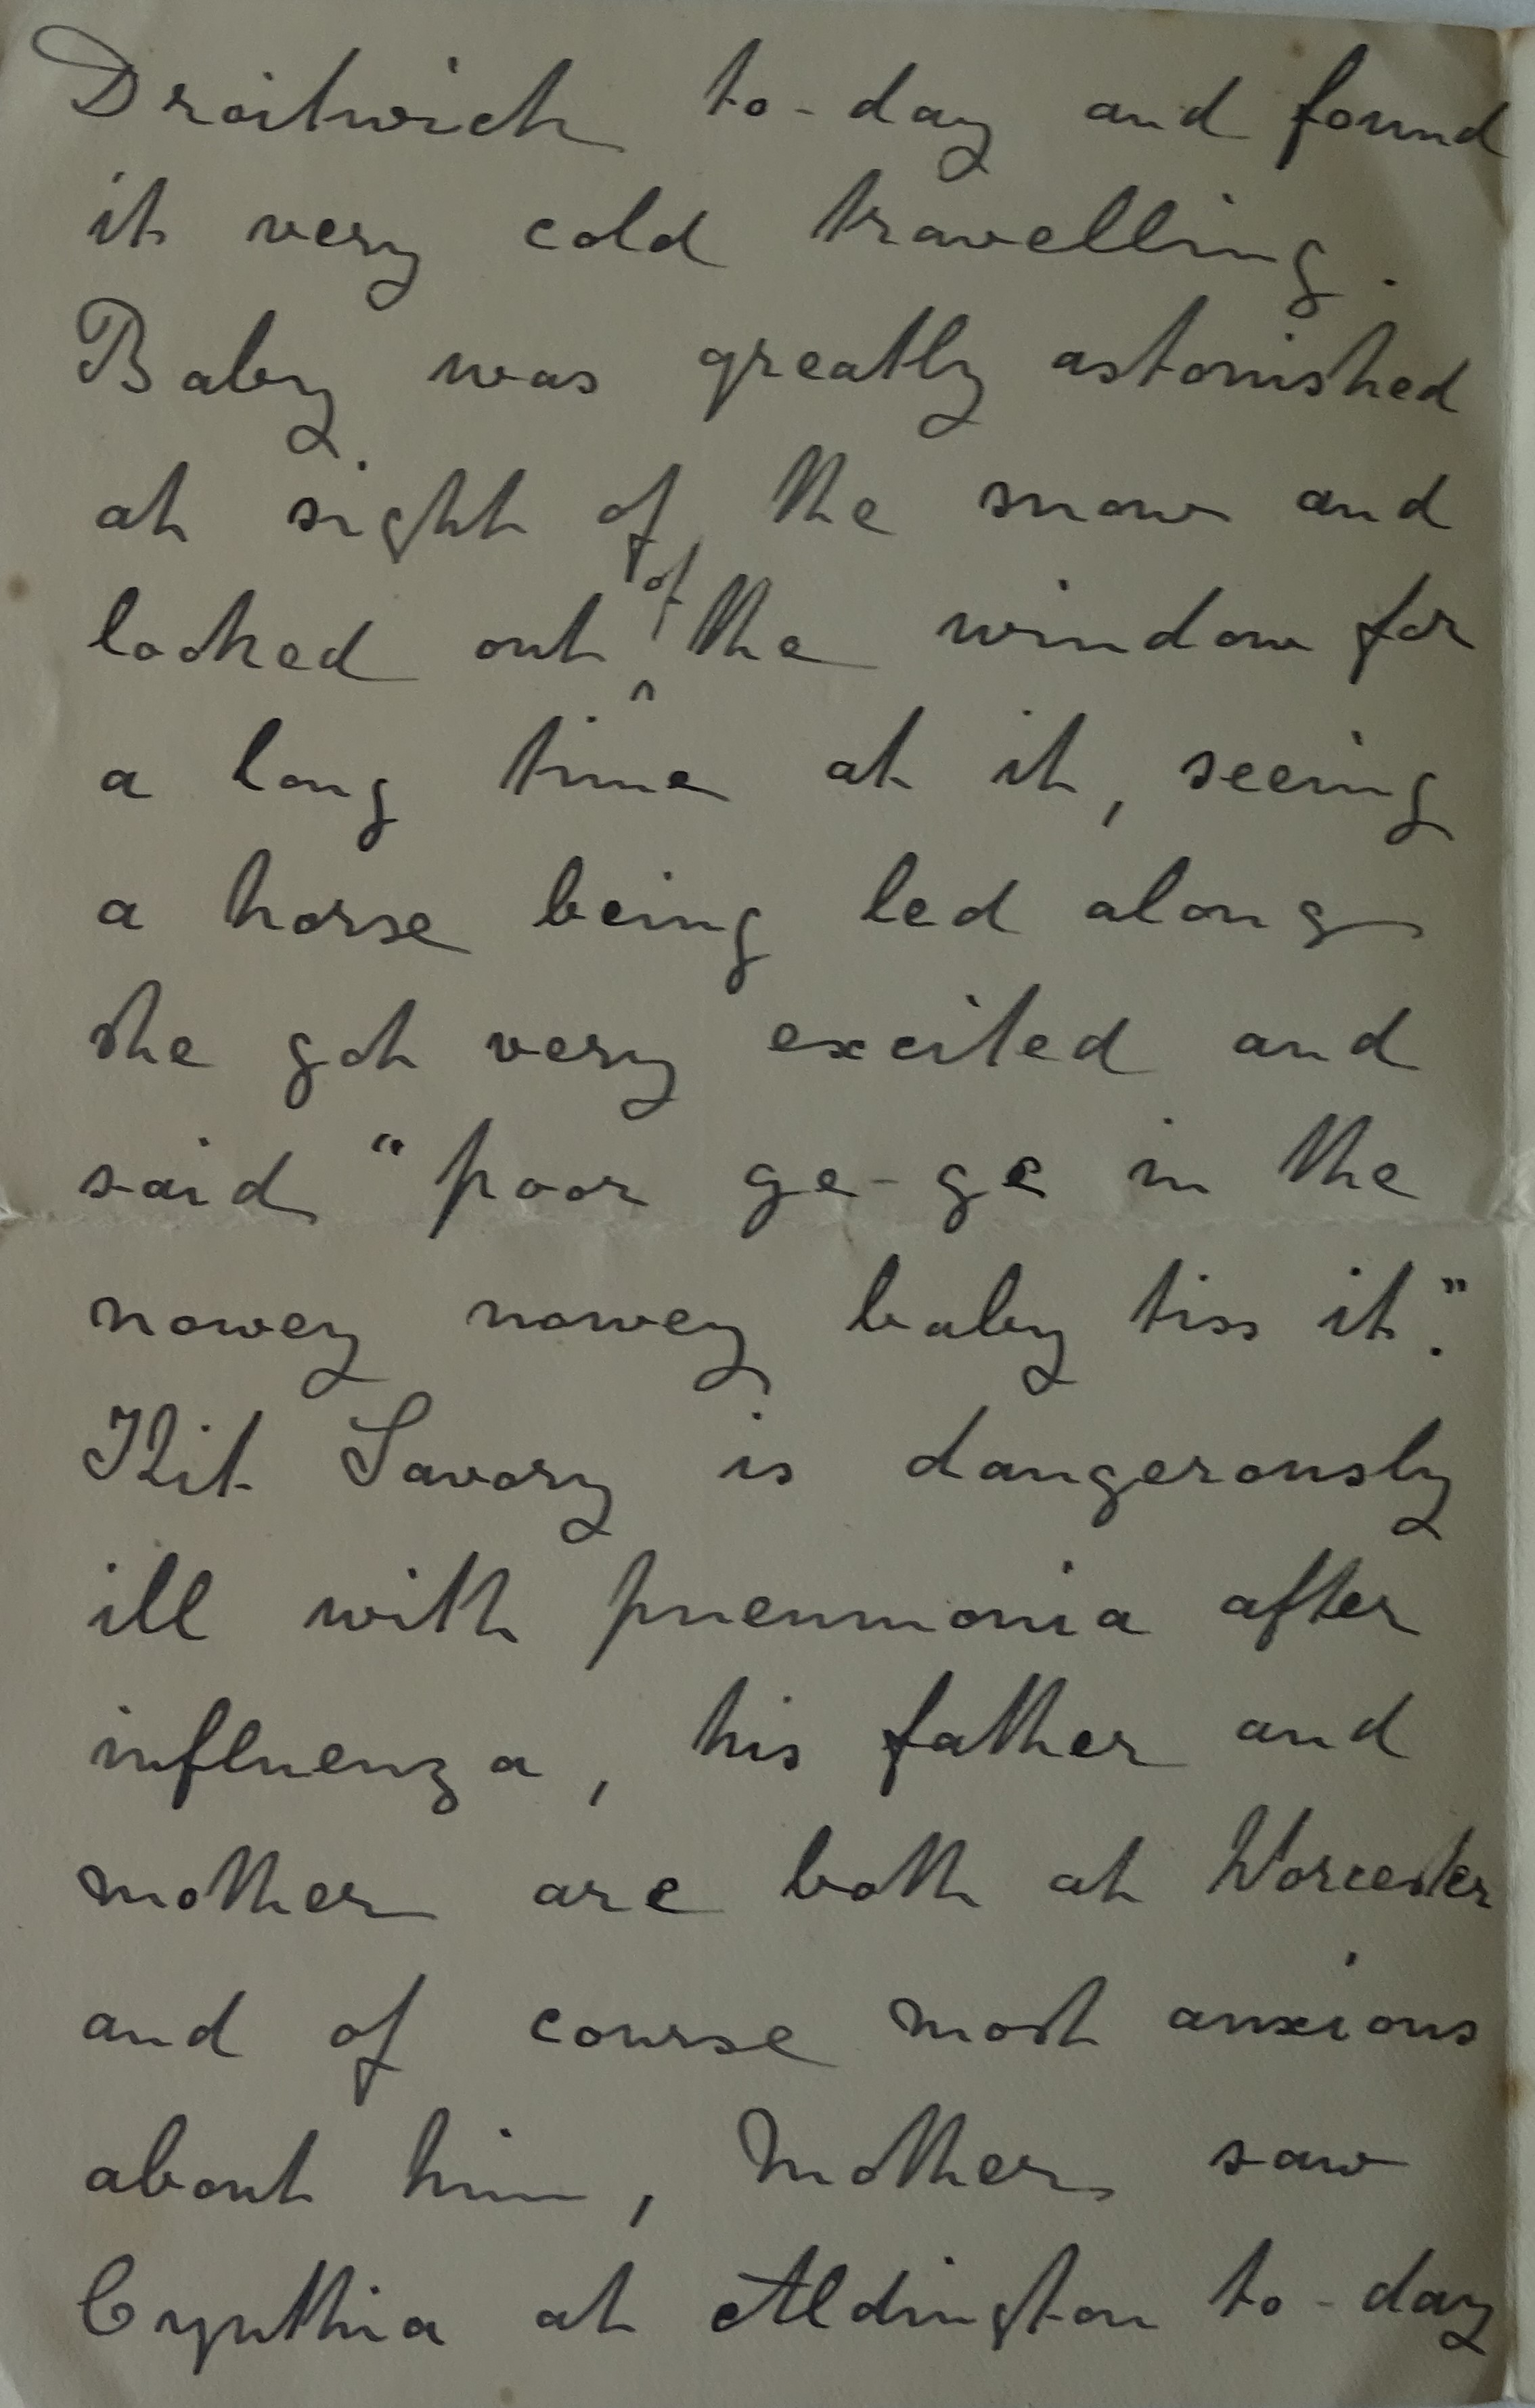 Droitwich to-day and found
it very cold travelling.
Baby was greatly astonished
at sight of the snow and
looked out of the window for
a long time at it, seeing
a horse being led along
she got very excited and
said "poor ge-ge in the
nowey nowey baby tiss it."
Kit Savory is dangerously
ill with pneumonia after
influenza, his father and
mother are both at Worcester
and of course most anxious
about him, Mother saw
Cynthia at Aldington to-day